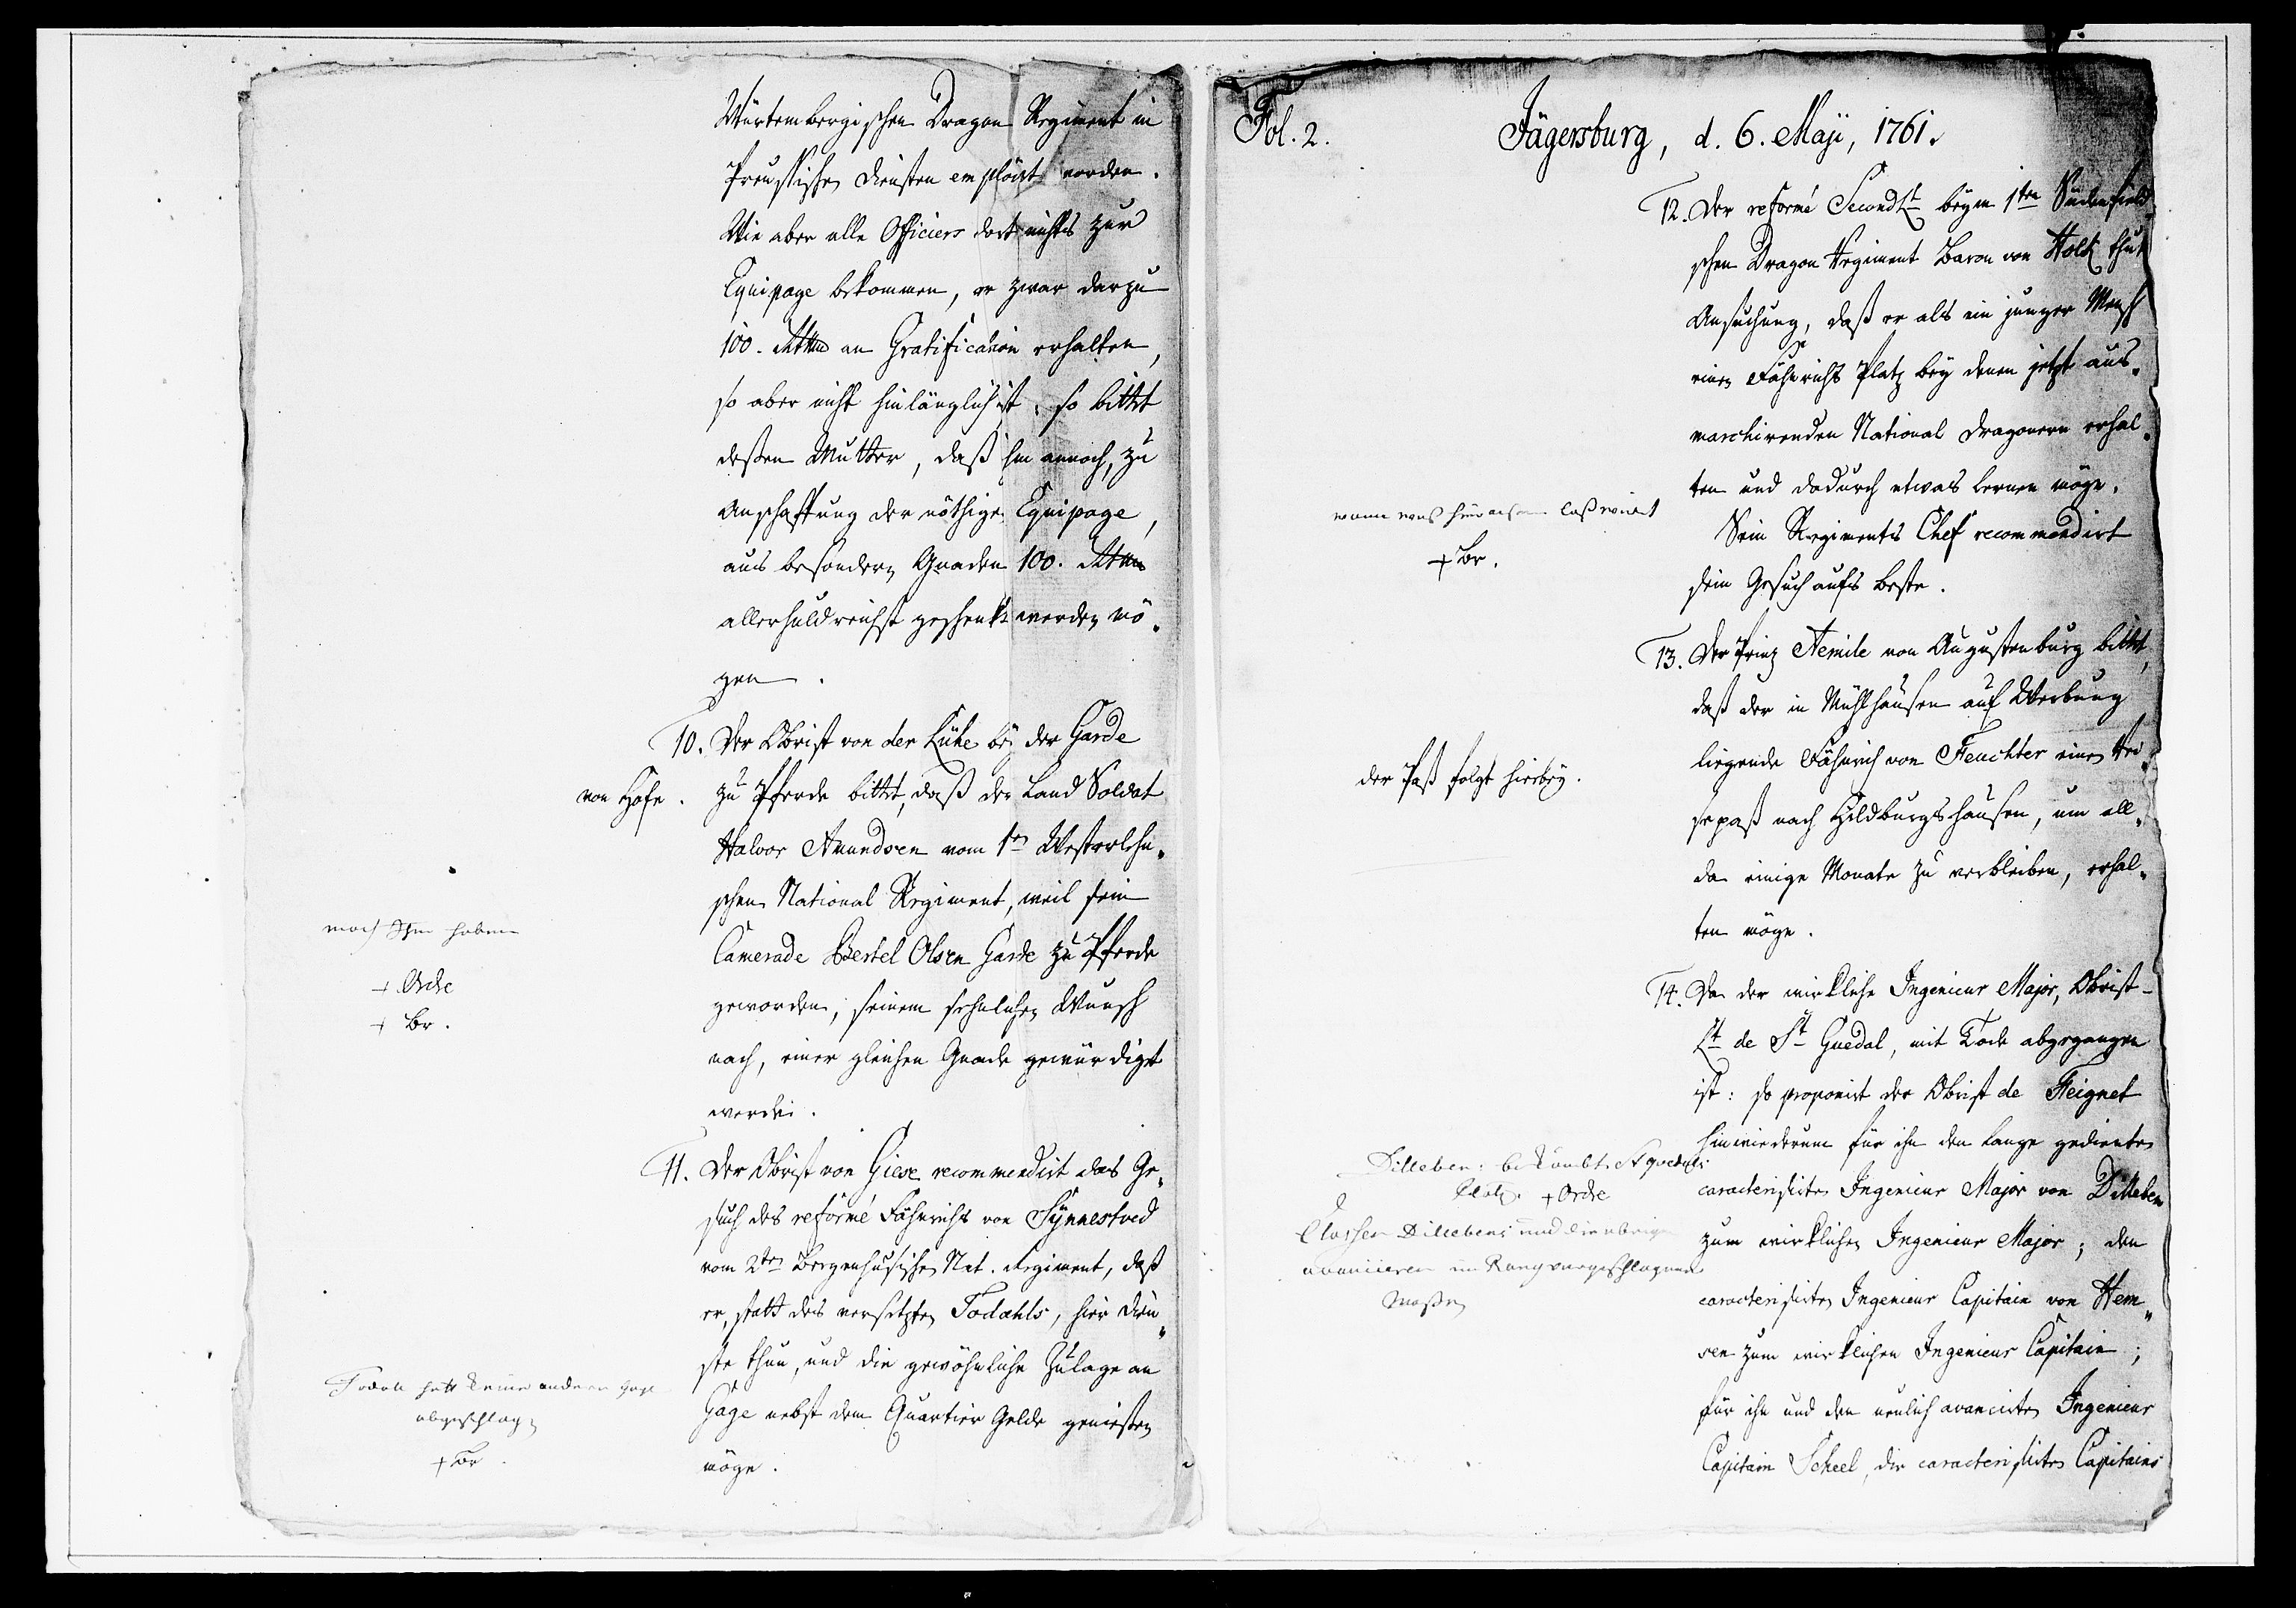 Würtembergischen Dragon Regiment in
Preussischen Diensten emploirt worden.
Wie aber alle Officiers dort nichts zur
Equipage bekommen, er zwar darzu
100. Rthlr an Gratification erhalten,
so aber nicht hinlänglich ist, so bittet
deßen Mutter, daß ihm annoch, zu
Anschaffung der nöthigen Equipage,
aus besondern Gnaden 100. Rthlr
allerhuldreichst geschenkt werden mö-
gen.
10. Der Obrist von der Lühe bey der Garde
von Hofe. zu Pferde bittet, daß der Land Soldat
Halvor Amundsen vom 1ten Westerlehn-
schen National Regiment, weil sein
Camerade Bertel Olsen Garde zu Pferde
geworden, seinem sehnlichen Wunsch
nach, einer gleichen Gnade gewürdigt
werde.
mach Ihm haben
+ Ordre
+ Br.
11. Der Obrist von Giese recommendirt das Ge-
such des reformé Fähnrichs von Synnestved
vom 2ten Bergenhusischen Nat. Regiment, daß
er, statt des versetzten Todæhls, hier Dien-
ste thun, und die gewöhnliche Zulage an
Gage nebst dem Quartier Gelde genießen
möge.
Todæl hatt keine andere gage
abgeschlagen
+ Br.
Fol. 2. Jägersburg, d. 6. Maji, 1761.
12. Der reformé Second Lt beym 1ten Südenfield-
schen Dragon Regiment Baron von Holck thut
Ansuchung, daß er als ein junger Mensch
einen Fähnrichs Platz bey denen jetzt aus-
marchirenden National Dragonern erhal-
ten und dadurch etwas lernen möge.
Sein Regiments Chef recommendirt
sein Gesuch aufs beste.
wann was
+ Br.
13. Der Prinz Aemile von Augustenburg bittet,
daß der in Mühlhausen auf Werbung
liegende Fähnrich von Feuchter einen Rei-
sepaß nach Hildburgshausen, um all-
da einige Monate zu verbleiben, erhal-
ten möge.
der Paß folgt hierbey.
14. Da der wirkliche Ingenieur Major, Obrist-
Lt de St Guedal, mit Tode abgegangen
ist: so proponirt der Obrist de Peignet
hinwiederum für ihn den lange gedienten
caracterisirten Ingenieur Major von Dilleben
zum wirklichen Ingenieur Major; den
caracterisirten Ingenieur Capitain von Hem-
sen zum wirklichen Ingenieur Capitain;
für ihn und den neulich avancirten Ingenieur
Capitain Scheel, die caracterisirten Capitains
Dilleben: bekombt St guedals
Platz. + Ordre
Dillebens und die übrige
avanciren im Rang vorgeschlagene
Maßen